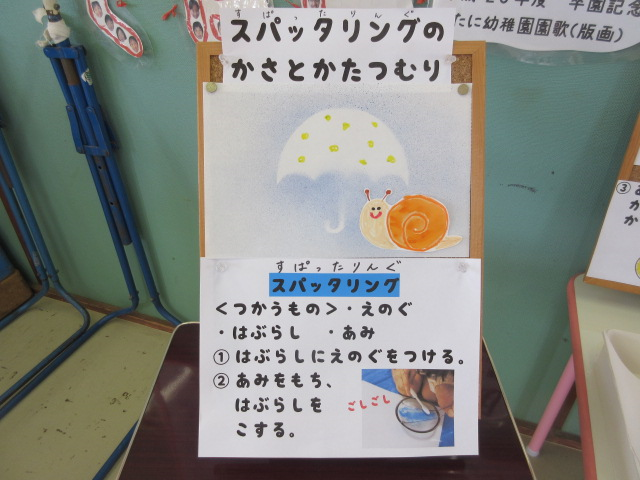 すぱったりんぐ
スパッタリングの
かさとかたつむり
すぱったりんぐ
スパッタリング
<つかうもの>・えのぐ
・はぶらし ・あみ
①はぶらしにえのぐをつける。
②あみをもち、
はぶらしを
こする。
ごしごし
学園記念
たに幼稚園園歌(版画)
③